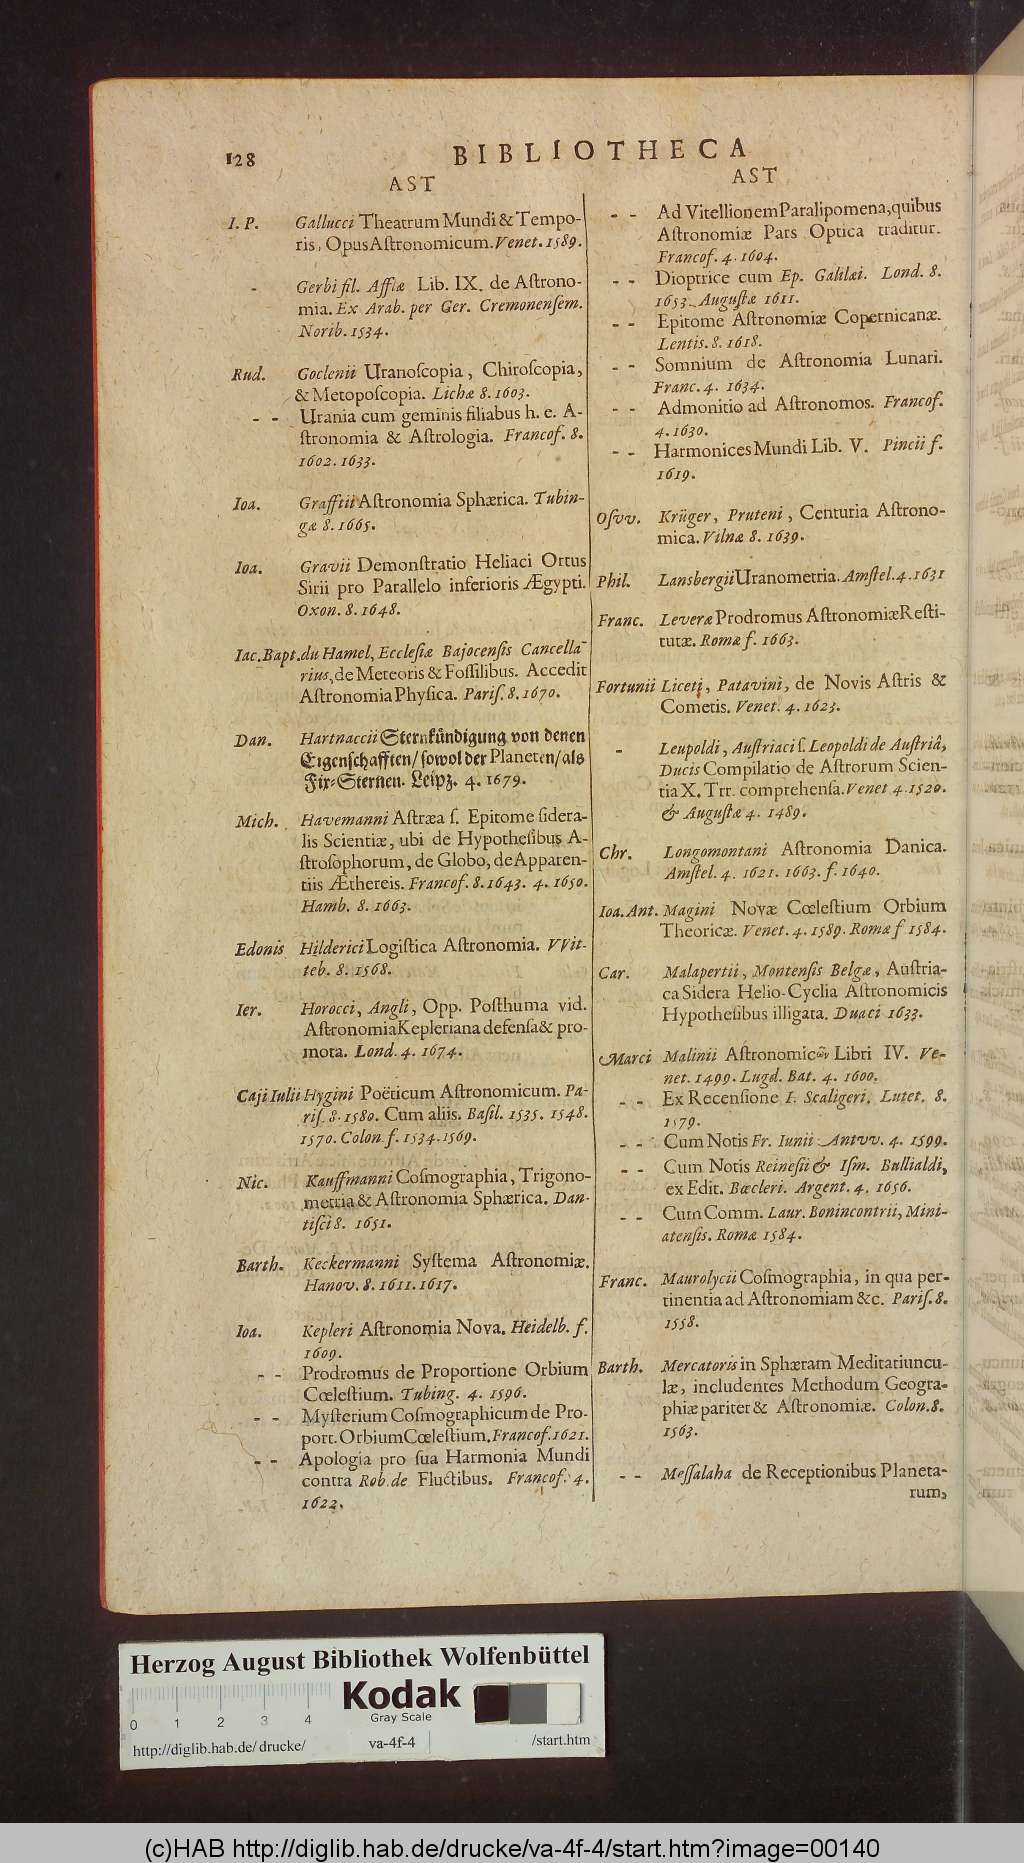 128
BIBLIOTHECA
AST
I. P. Gallucci Theatrum Mundi & Tempo-
ris, Opus Aſtronomicum. Venet. 1589.
- Gerbi fil. Afflæ Lib. IX. de Aſtrono-
mia. Ex Arab. per Ger. Cremonenſem.
Norib. 1534.
Rud. Goclenii Uranoſcopia, Chiroſcopia,
& Metopoſcopia. Lichæ 8. 1603.
- - Urania cum geminis filiabus h. e. A-
ſtronomia & Aſtrologia. Francof. 8.
1602. 1633.
Ioa. Grafftii Aſtronomia Sphærica. Tubin-
gæ 8. 1665.
Ioa. Gravii Demonſtratio Heliaci Ortus
Sirii pro Parallelo inferioris Ægypti.
Oxon. 8. 1648.
Iac. Bapt. du Hamel, Eccleſiæ Bajocenſis Cancella-
rius, de Meteoris & Foſſilibus. Accedit
Aſtronomia Phyſica. Pariſ. 8. 1670.
Dan. Hartnaccii Sternkündigung von denen
Eigenſchafften/ ſowol der Planeten/ als
Fix-Sternen. Leipz. 4. 1679.
Mich. Havemanni Aſtræa ſ. Epitome ſidera-
lis Scientiæ, ubi de Hypotheſibus A-
ſtroſophorum, de Globo, de Apparen-
tiis Æthereis. Francof. 8. 1643. 4. 1650.
Hamb. 8. 1663.
Edonis Hilderici Logiſtica Aſtronomia. VVit-
teb. 8. 1568.
Ier. Horocci, Angli, Opp. Poſthuma vid.
Aſtronomia Kepleriana defenſa & pro-
mota. Lond. 4. 1674.
Caji Iulii Hygini Poëticum Aſtronomicum. Pa-
riſ. 8. 1580. Cum aliis. Baſil. 1535. 1548.
1570. Colon f. 1534. 1569.
Nic. Kauffmanni Coſmographia, Trigono-
metria & Aſtronomia Sphærica. Dan-
tiſci 8. 1651.
Barth. Keckermanni Syſtema Aſtronomiæ.
Hanov. 8. 1611. 1617.
Ioa. Kepleri Aſtronomia Nova. Heidelb. f.
1609.
- - Prodromus de Proportione Orbium
Cœleſtium. Tubing. 4. 1596.
- - Myſterium Coſmographicum de Pro-
port. Orbium Cœleſtium. Francof. 1621.
- - Apologia pro ſua Harmonia Mundi
contra Rob. de Fluctibus. Francof. 4.
1622.
AST
- - Ad Vitellionem Paralipomena, quibus
Aſtronomiæ Pars Optica traditur.
Francof. 4. 1604.
- - Dioptrice cum Ep. Galilæi. Lond. 8.
1653. Auguſtæ 1611.
- - Epitome Aſtronomiæ Copernicanæ.
Lentis. 8. 1618.
- - Somnium de Aſtronomia Lunari.
Franc. 4. 1634.
- - Admonitio ad Aſtronomos. Francof.
4. 1630.
- - Harmonices Mundi Lib. V. Pincii f.
1619.
Oſvv. Krüger, Pruteni, Centuria Aſtrono-
mica. Vilnæ 8. 1639.
Phil. Lansbergii Uranometria. Amſtel. 4. 1631
Franc. Leveræ Prodromus Aſtronomiæ Reſti-
tutæ. Romæ f. 1663.
Fortunii Liceti, Patavini, de Novis Aſtris &
Cometis. Venet. 4. 1623.
- Leupoldi, Auſtriaci ſ. Leopoldi de Auſtriâ,
Ducis Compilatio de Aſtrorum Scien-
tia X. Trr. comprehenſa. Venet 4. 1520.
& Auguſtæ 4. 1489.
Chr. Longomontani Aſtronomia Danica.
Amſtel. 4. 1621. 1663. f. 1640.
Ioa. Ant. Magini Novæ Cœleſtium Orbium
Theoricæ. Venet. 4. 1589. Romæ f 1584.
Car. Malapertii, Montenſis Belgæ, Auſtria-
ca Sidera Helio-Cyclia Aſtronomicis
Hypotheſibus illigata. Duaci 1633.
Marci Malinii Aſtronomicῶν Libri IV. Ve-
net. 1499. Lugd. Bat. 4. 1600.
- - Ex Recenſione I. Scaligeri. Lutet. 8.
1579.
- - Cum Notis Fr. Iunii Antvv. 4. 1599.
- - Cum Notis Reineſii & Iſm. Bullialdi,
ex Edit. Bœcleri. Argent. 4. 1656.
- - Cum Comm. Laur. Bonincontrii, Mini-
atenſis. Romæ 1584.
Franc. Maurolycii Coſmographia, in qua per-
tinentia ad Aſtronomiam &c. Pariſ. 8.
1558.
Barth. Mercatoris in Sphæram Meditatiuncu-
læ, includentes Methodum Geogra-
phiæ pariter & Aſtronomiæ. Colon. 8.
1563.
- - Meſſalaha de Receptionibus Planeta-
rum,
Herzog August Bibliothek Wolfenbüttel
Kodak
Gray Scale
0 1 2 3 4
http://diglib.hab.de/drucke/ va-4f-4 /start.htm
(c)HAB http://diglib.hab.de/drucke/va-4f-4/start.htm?image=00140